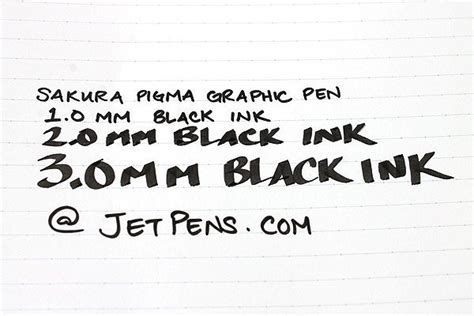 SAKURA PIGMA GRAPHIC PEN
1.0 MM BLACK INK
2.0 MM BLACK INK
3.0MM BLACK INK
@ JETPENS.COM